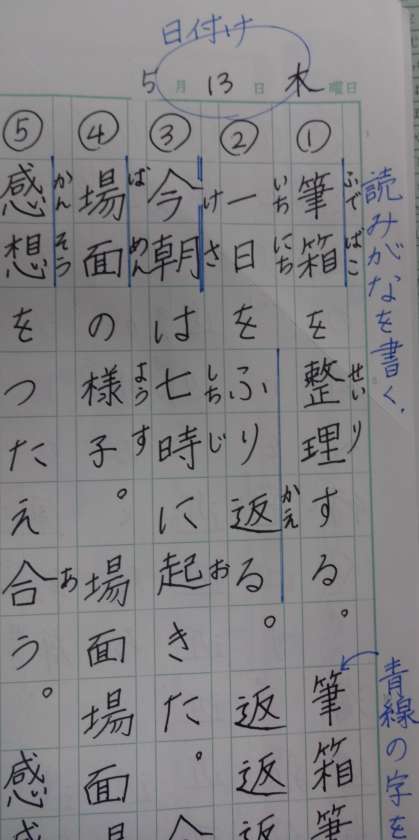 日付け
5月13日木曜日
読みがなを書く.
青線の字を
①
筆箱を整理する。筆箱筆
ふでばこ せいり
②
一日をふり返る。返返返
いちにち かえ
③
今朝は七時に起きた。今
けさ しちじ お
④
場面の様子。場面場面場
ばめん ようす
⑤
感想をつたえ合う。感感
かんそう あ